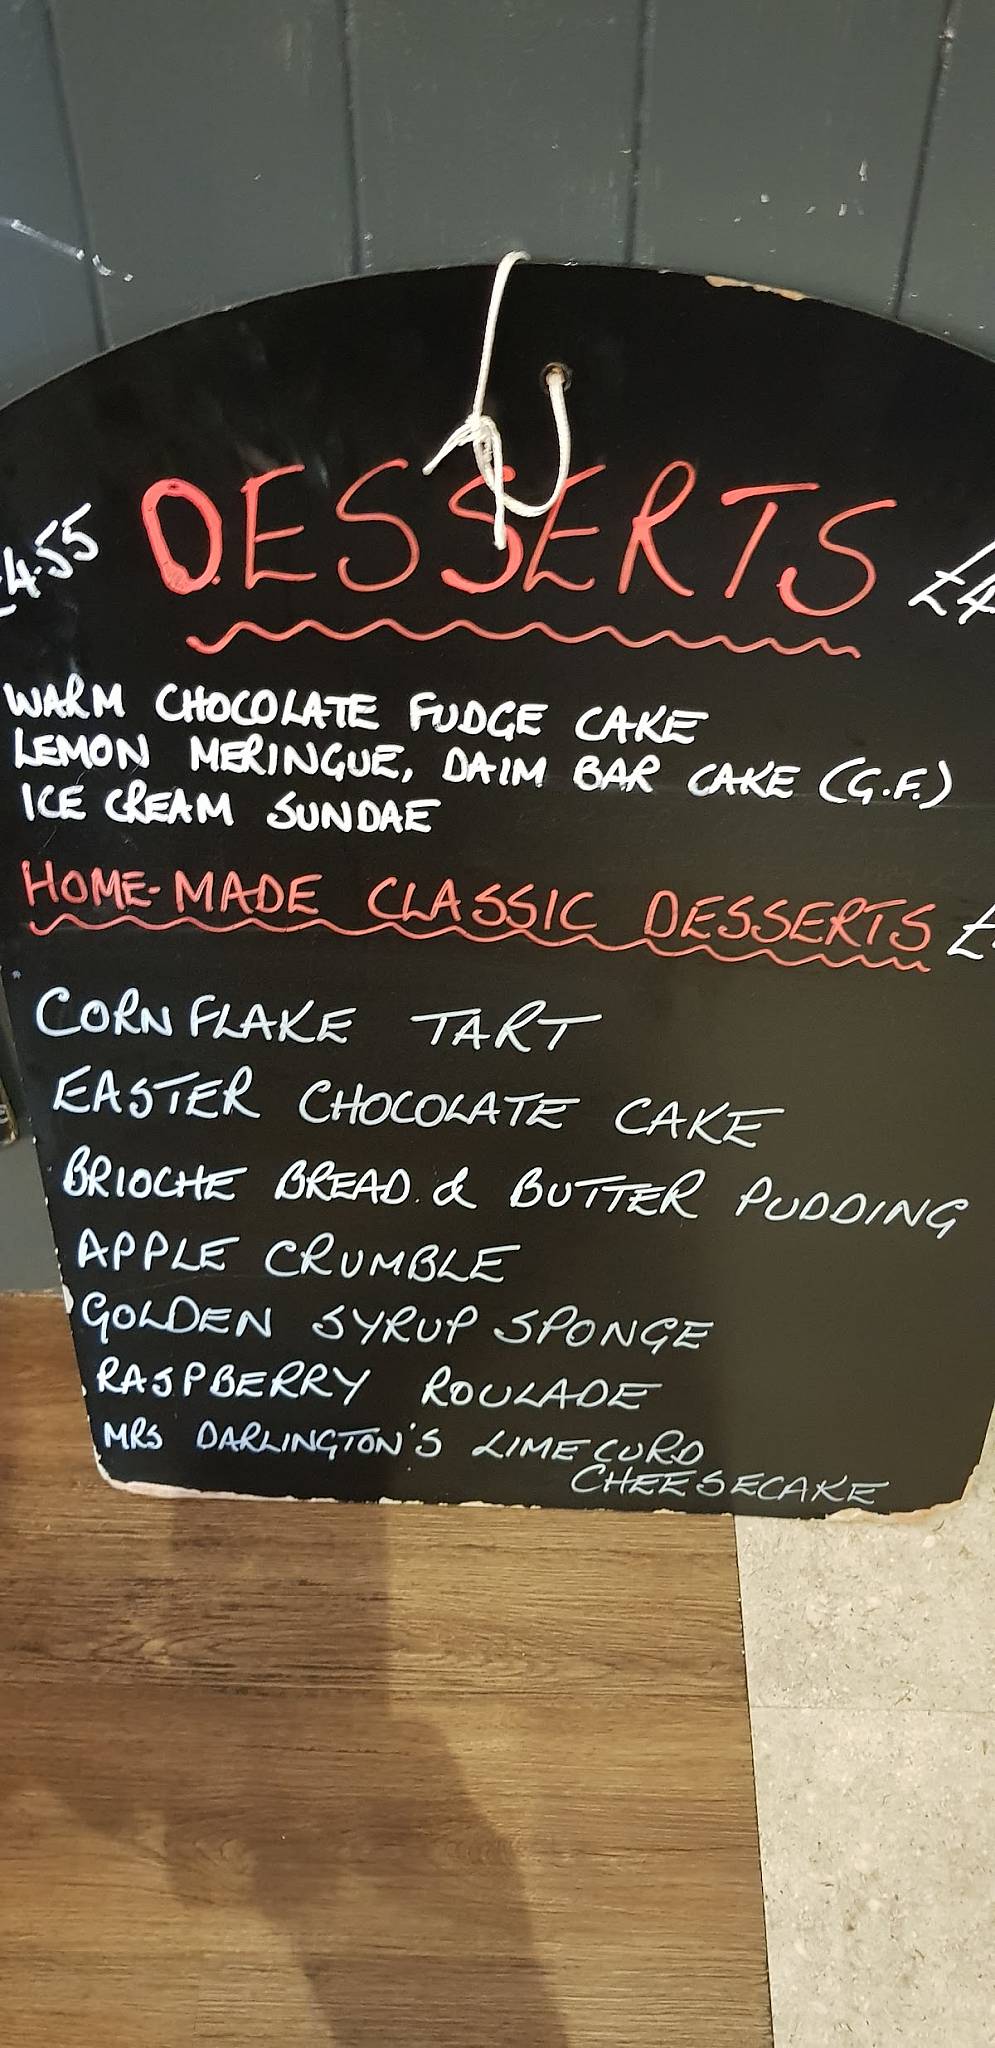 £4.55 DESSERTS £4
WARM CHOCOLATE FUDGE CAKE
LEMON MERINGUE, DAIM BAR CAKE (G.F.)
ICE CREAM SUNDAE
HOME-MADE CLASSIC DESSERTS £
CORNFLAKE TART
EASTER CHOCOLATE CAKE
BRIOCHE BREAD & BUTTER PUDDING
APPLE CRUMBLE
GOLDEN SYRUP SPONGE
RASPBERRY ROULADE
MRS DARLINGTON'S LIME CURD
CHEESECAKE